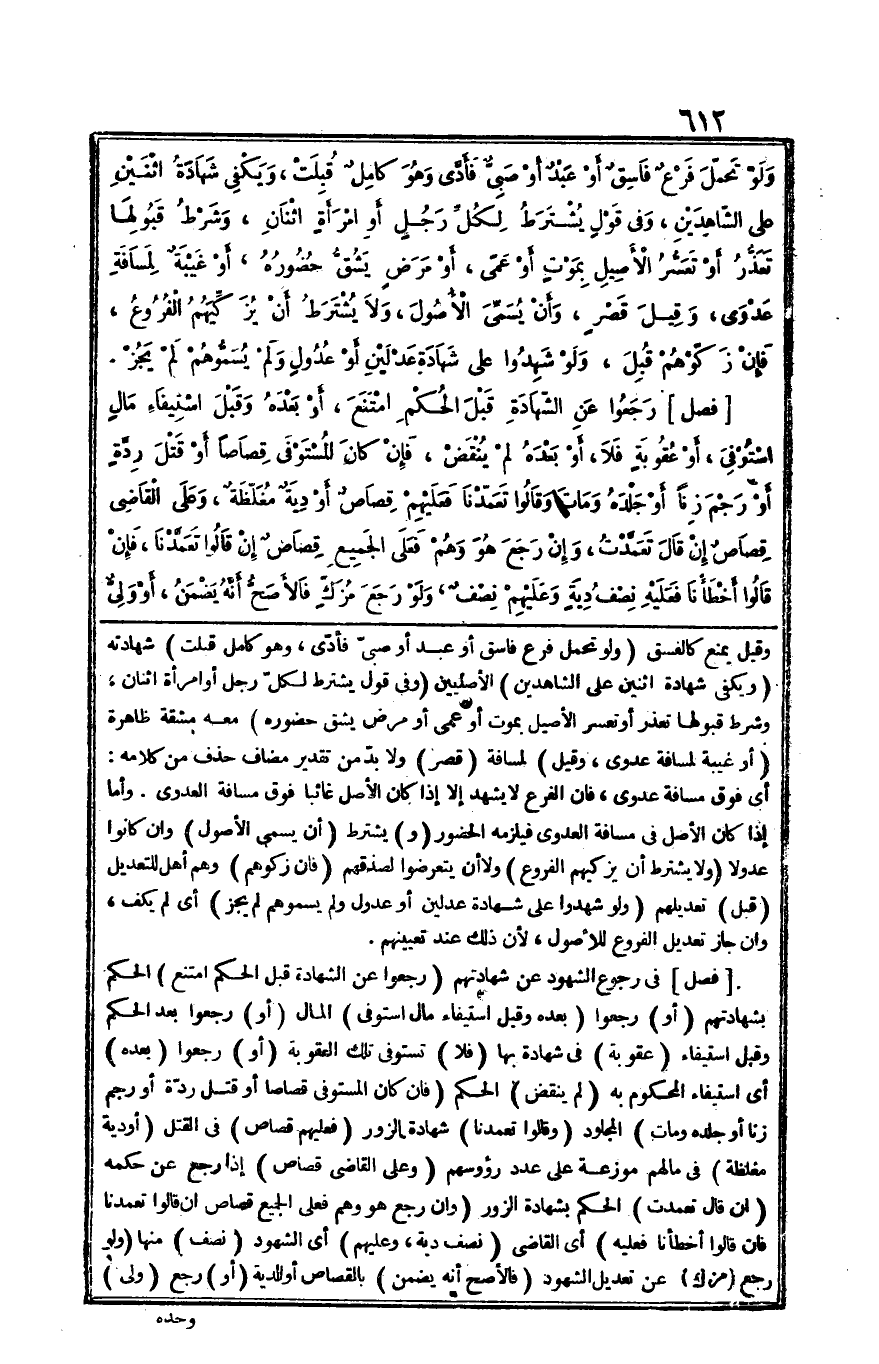 ٦١٢
وَلَوْ تَحَمَّلَ فَرْعٌ فَاسِقٌ أَوْ عَبْدٌ أَوْ صَبِيٌّ فَأَدَّى وَهُوَ كَامِلٌ قُبِلَتْ ، وَيَكْفِى شَهَادَةُ اثْنَيْنِ
عَلَى الشَّاهِدَيْنِ ، وَفِى قَوْلٍ يُشْتَرَطُ لِكُلِّ رَجُلٍ أَوِ امْرَأَةٍ اثْنَانِ ، وَشَرْطُ قَبُولِهَا
تَعَذُّرُ أَوْ تَعَسُّرُ الْأَصِيلِ بِمَوْتٍ أَوْ عَمًى ، أَوْ مَرَضٍ يَشُقُّ حُضُورُهُ ، أَوْ غَيْبَةٌ لِمَسَافَةِ
عَدْوَى ، وَقِيلَ قَصْرٍ ، وَأَنْ يُسَمِّىَ الْأُصُولَ ، وَلَا يُشْتَرَطُ أَنْ يُزَكِّيَهُمُ الْفُرُوعُ ،
فَإِنْ زَكَّوْهُمْ قُبِلَ ، وَلَوْ شَهِدُوا عَلَى شَهَادَةِ عَدْلَيْنِ أَوْ عُدُولٍ وَلَمْ يُسَمُّوهُمْ لَمْ يَجُزْ .
[ فصل ] رَجَعُوا عَنِ الشَّهَادَةِ قَبْلَ الْحُكْمِ امْتَنَعَ ، أَوْ بَعْدَهُ وَقَبْلَ اسْتِيفَاءِ مَالٍ
اسْتُوْفِىَ ، أَوْ عُقُوبَةٍ فَلَا ، أَوْ بَعْدَهُ لَمْ يُنْقَضْ ، فَإِنْ كَانَ الْمُسْتَوْفَى قِصَاصًا أَوْ قَتْلَ رِدَّةٍ
أَوْ رَجْمَ زِنًا أَوْ جَلْدَهُ وَمَاتَ وَقَالُوا تَعَمَّدْنَا فَعَلَيْهِمْ قِصَاصٌ أَوْ دِيَةٌ مُغَلَّظَةٌ ، وَعَلَى الْقَاضِى
قِصَاصٌ إِنْ قَالَ تَعَمَّدْتُ ، وَإِنْ رَجَعَ هُوَ وَهُمْ فَعَلَى الْجَمِيعِ قِصَاصٌ إِنْ قَالُوا تَعَمَّدْنَا ، فَإِنْ
قَالُوا أَخْطَأْنَا فَعَلَيْهِ نِصْفُ دِيَةٍ وَعَلَيْهِمْ نِصْفٌ ، وَلَوْ رَجَعَ مُزَكٍّ فَالْأَصَحُّ أَنَّهُ يَضْمَنُ ، أَوْ وَلِىٌّ
وقيل يمنع كالفسق ( ولو تحمل فرع فاسق أو عبد أو صبىّ فأدّى ، وهو كامل قبلت ) شهادته
( ويكفى شهادة اثنين على الشاهدين ) الأصليين ( وفى قول يشترط لكلّ رجل أو امرأة اثنان ،
وشرط قبولها تعذر أو تعسر الأصيل بموت أو عمى أو مرض يشق حضوره ) معه مشقة ظاهرة
( أو غيبة لمسافة عدوى ، وقيل ) لمسافة ( قصر ) ولا بدّ من تقدير مضاف حذف من كلامه :
أى فوق مسافة عدوى ، فان الفرع لا يشهد إلا إذا كان الأصل غائبا فوق مسافة العدوى . وأما
إذا كان الأصل فى مسافة العدوى فيلزمه الحضور ( و ) يشترط ( أن يسمى الأصول ) وان كانوا
عدولا ( ولا يشترط أن يزكيهم الفروع ) ولا أن يتعرضوا لصدقهم ( فان زكوهم ) وهم أهل للتعديل
( قبل ) تعديلهم ( ولو شهدوا على شهادة عدلين أو عدول ولم يسموهم لم يجز ) أى لم يكف ،
وان جاز تعديل الفروع للأصول ، لأن ذلك عند تعيينهم .
[ فصل ] فى رجوع الشهود عن شهادتهم ( رجعوا عن الشهادة قبل الحكم امتنع ) الحكم
بشهادتهم ( أو ) رجعوا ( بعده وقبل استيفاء مال استوفى ) المال ( أو ) رجعوا بعد الحكم
وقبل استيفاء ( عقوبة ) فى شهادة بها ( فلا ) تستوفى تلك العقوبة ( أو ) رجعوا ( بعده )
أى استيفاء المحكوم به ( لم ينقض ) الحكم ( فان كان المستوفى قصاصا أو قتل ردّة أو رجم
زنا أو جلده ومات ) المجلود ( وقالوا تعمدنا ) شهادة الزور ( فعليهم قصاص ) فى القتل ( أو دية
مغلظة ) فى مالهم موزعة على عدد رؤوسهم ( وعلى القاضى قصاص ) إذا رجع عن حكمه
( ان قال تعمدت ) الحكم بشهادة الزور ( وان رجع هو وهم فعلى الجيع قصاص ان قالوا تعمدنا
فان قالوا أخطأنا فعليه ) أى القاضى ( نصف دية ، وعليهم ) أى الشهود ( نصف ) منها ( ولو
رجع ( مزك ) عن تعديل الشهود ( فالأصح أنه يضمن ) بالقصاص أو الدية ( أو ) رجع ( ولى )
وحده